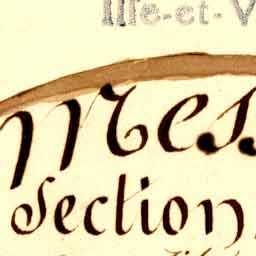 Ille-et-V
Mess
Section